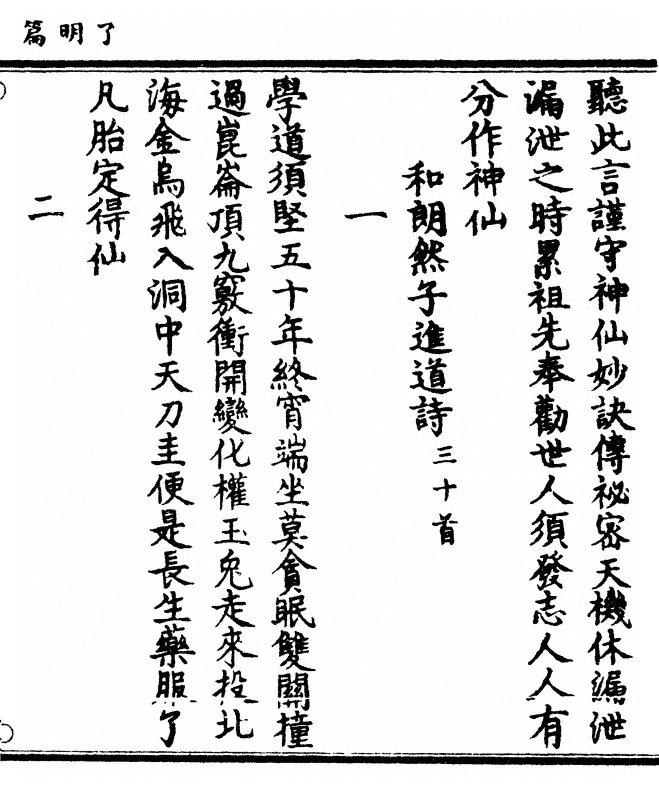 了明篇
聽此言謹守神仙妙訣傳祕密天機休漏泄
漏泄之時累祖先奉勸世人須發志人人有
分作神仙
和朗然子進道詩三十首
一
學道須堅五十年終宵端坐莫貪眠雙關撞
過崑崙頂九竅衝開變化權玉兔走來投北
海金烏飛入洞中天刀圭便是長生藥服了
凡胎定得仙
二